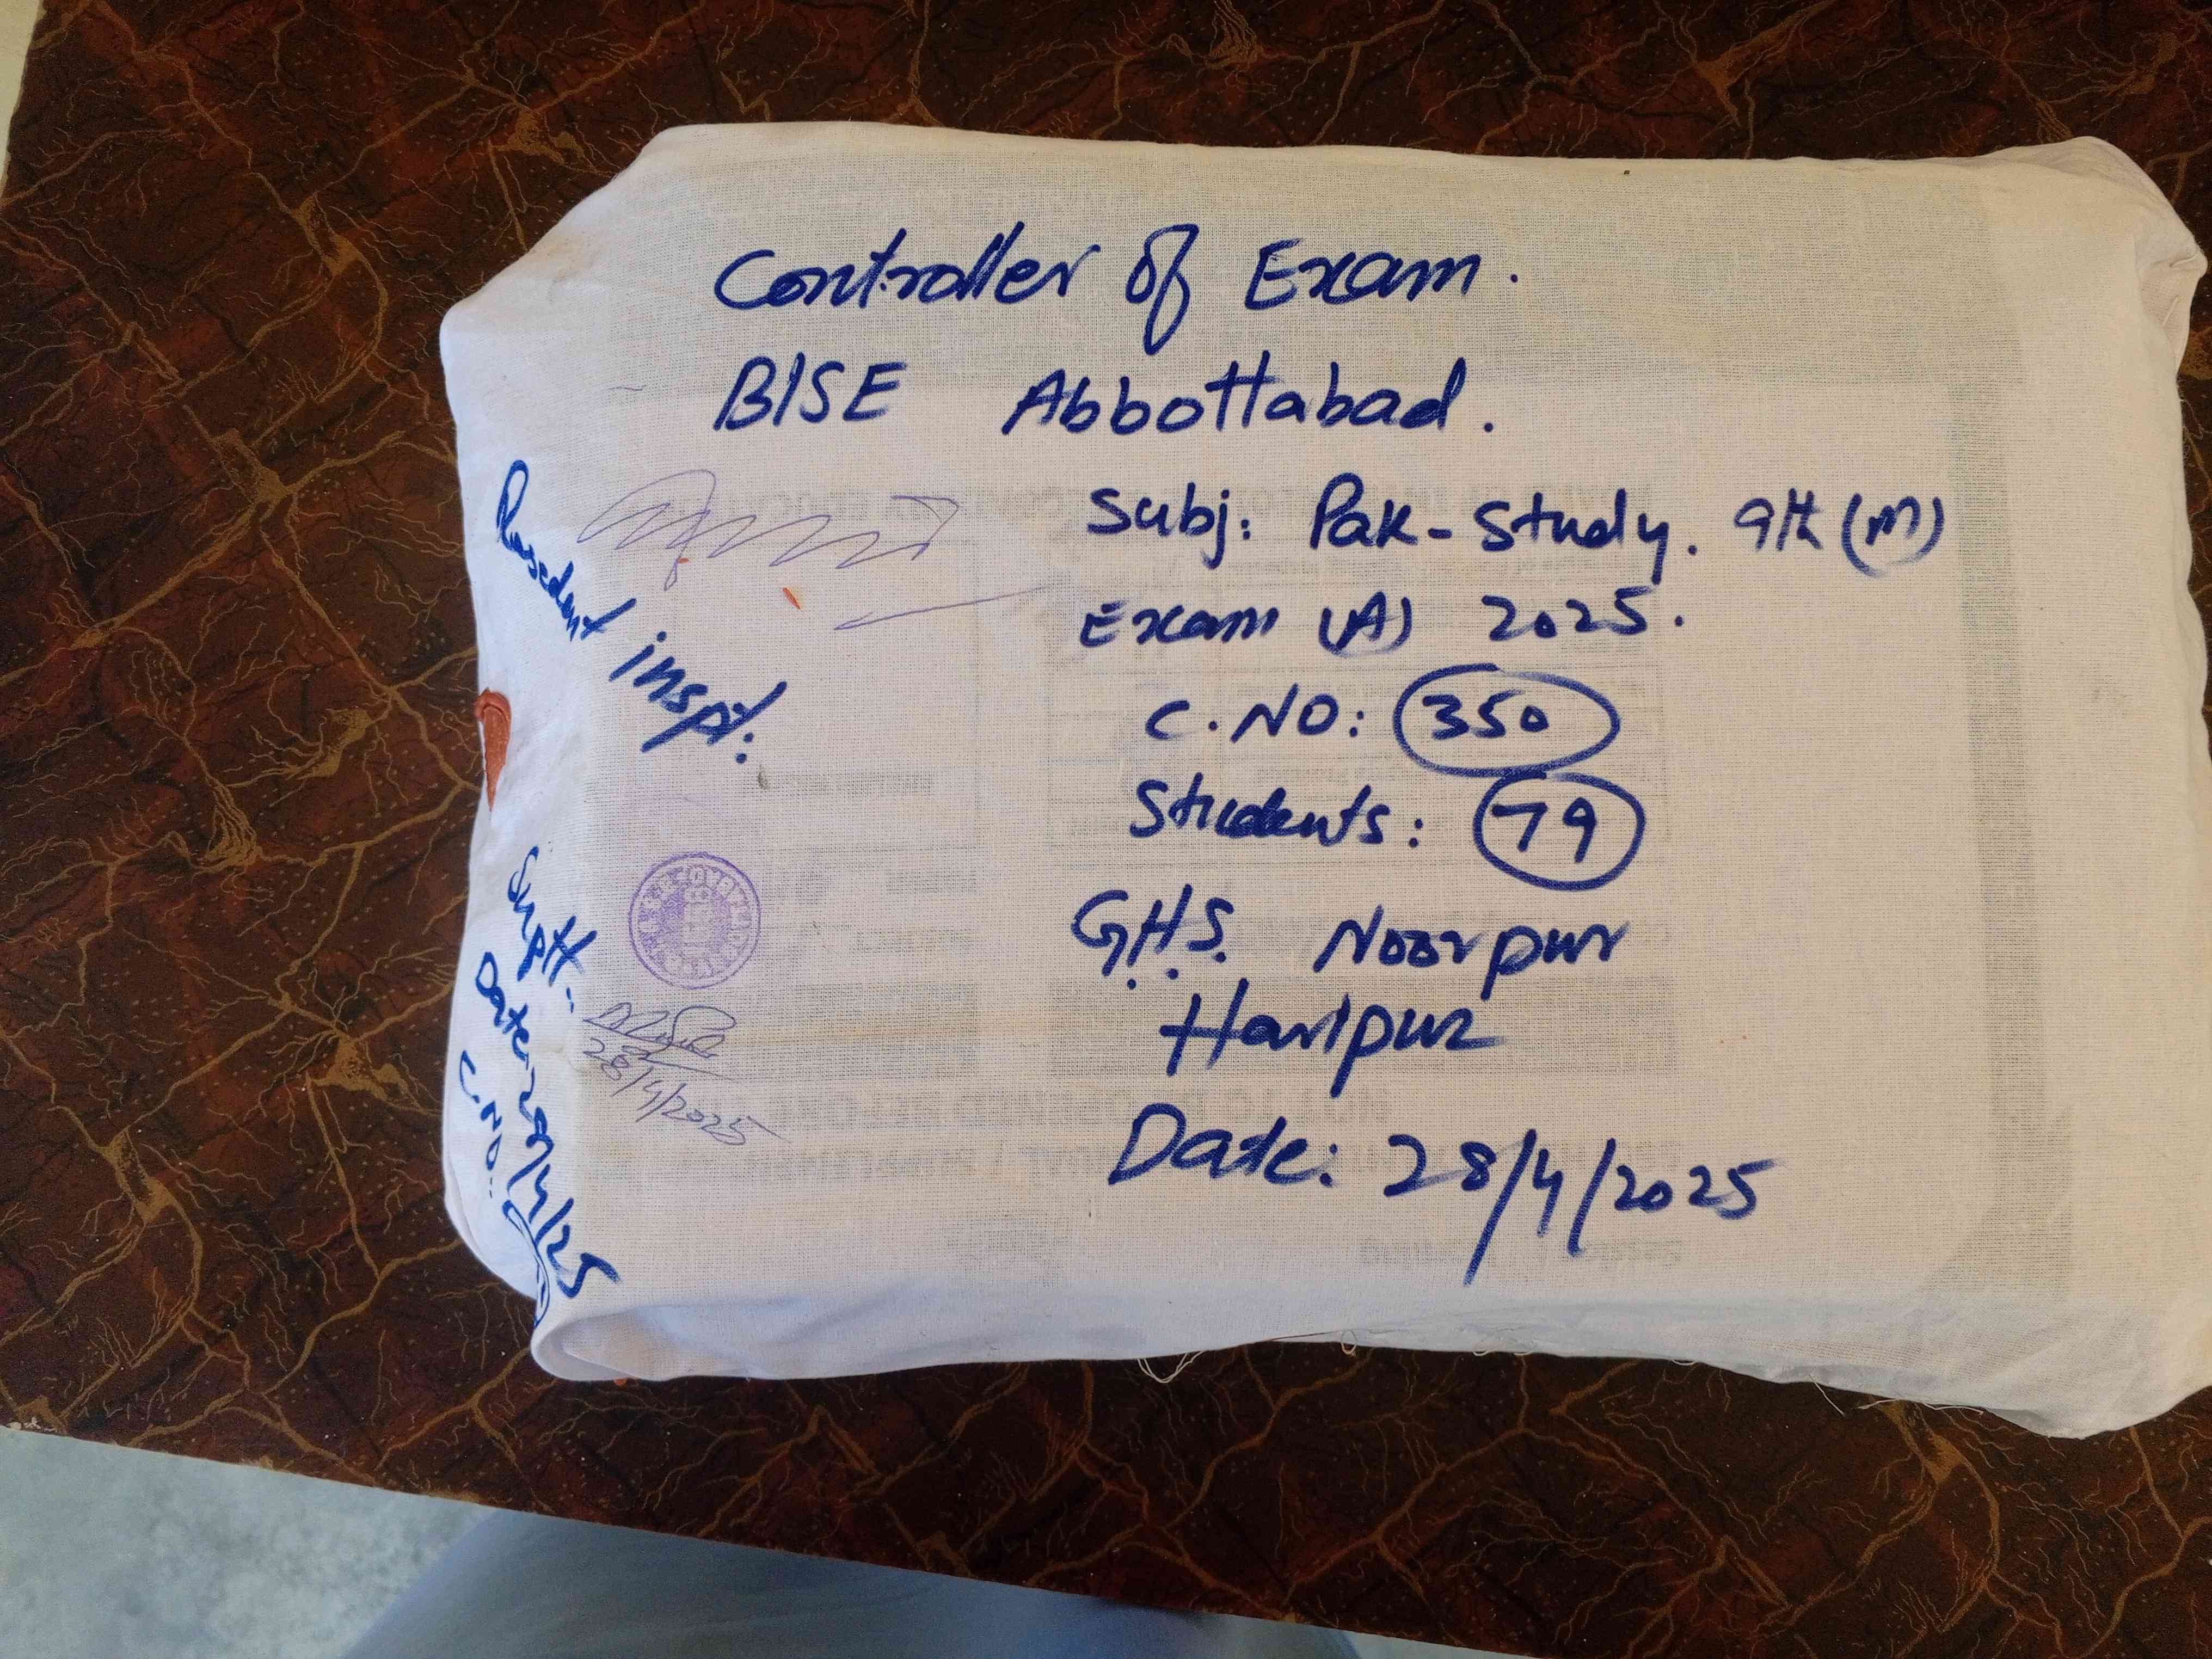 Controller of Exam.
BISE Abbottabad.
Subj: Pak-Study. 9th (M)
Exam (A) 2025.
C.NO: 350
Students: 79
G.H.S. Noorpur
Haripur
Date: 28/4/2025
inspt:
Suptt..
Date: 28/4/25
C.NO..
28/4/2025